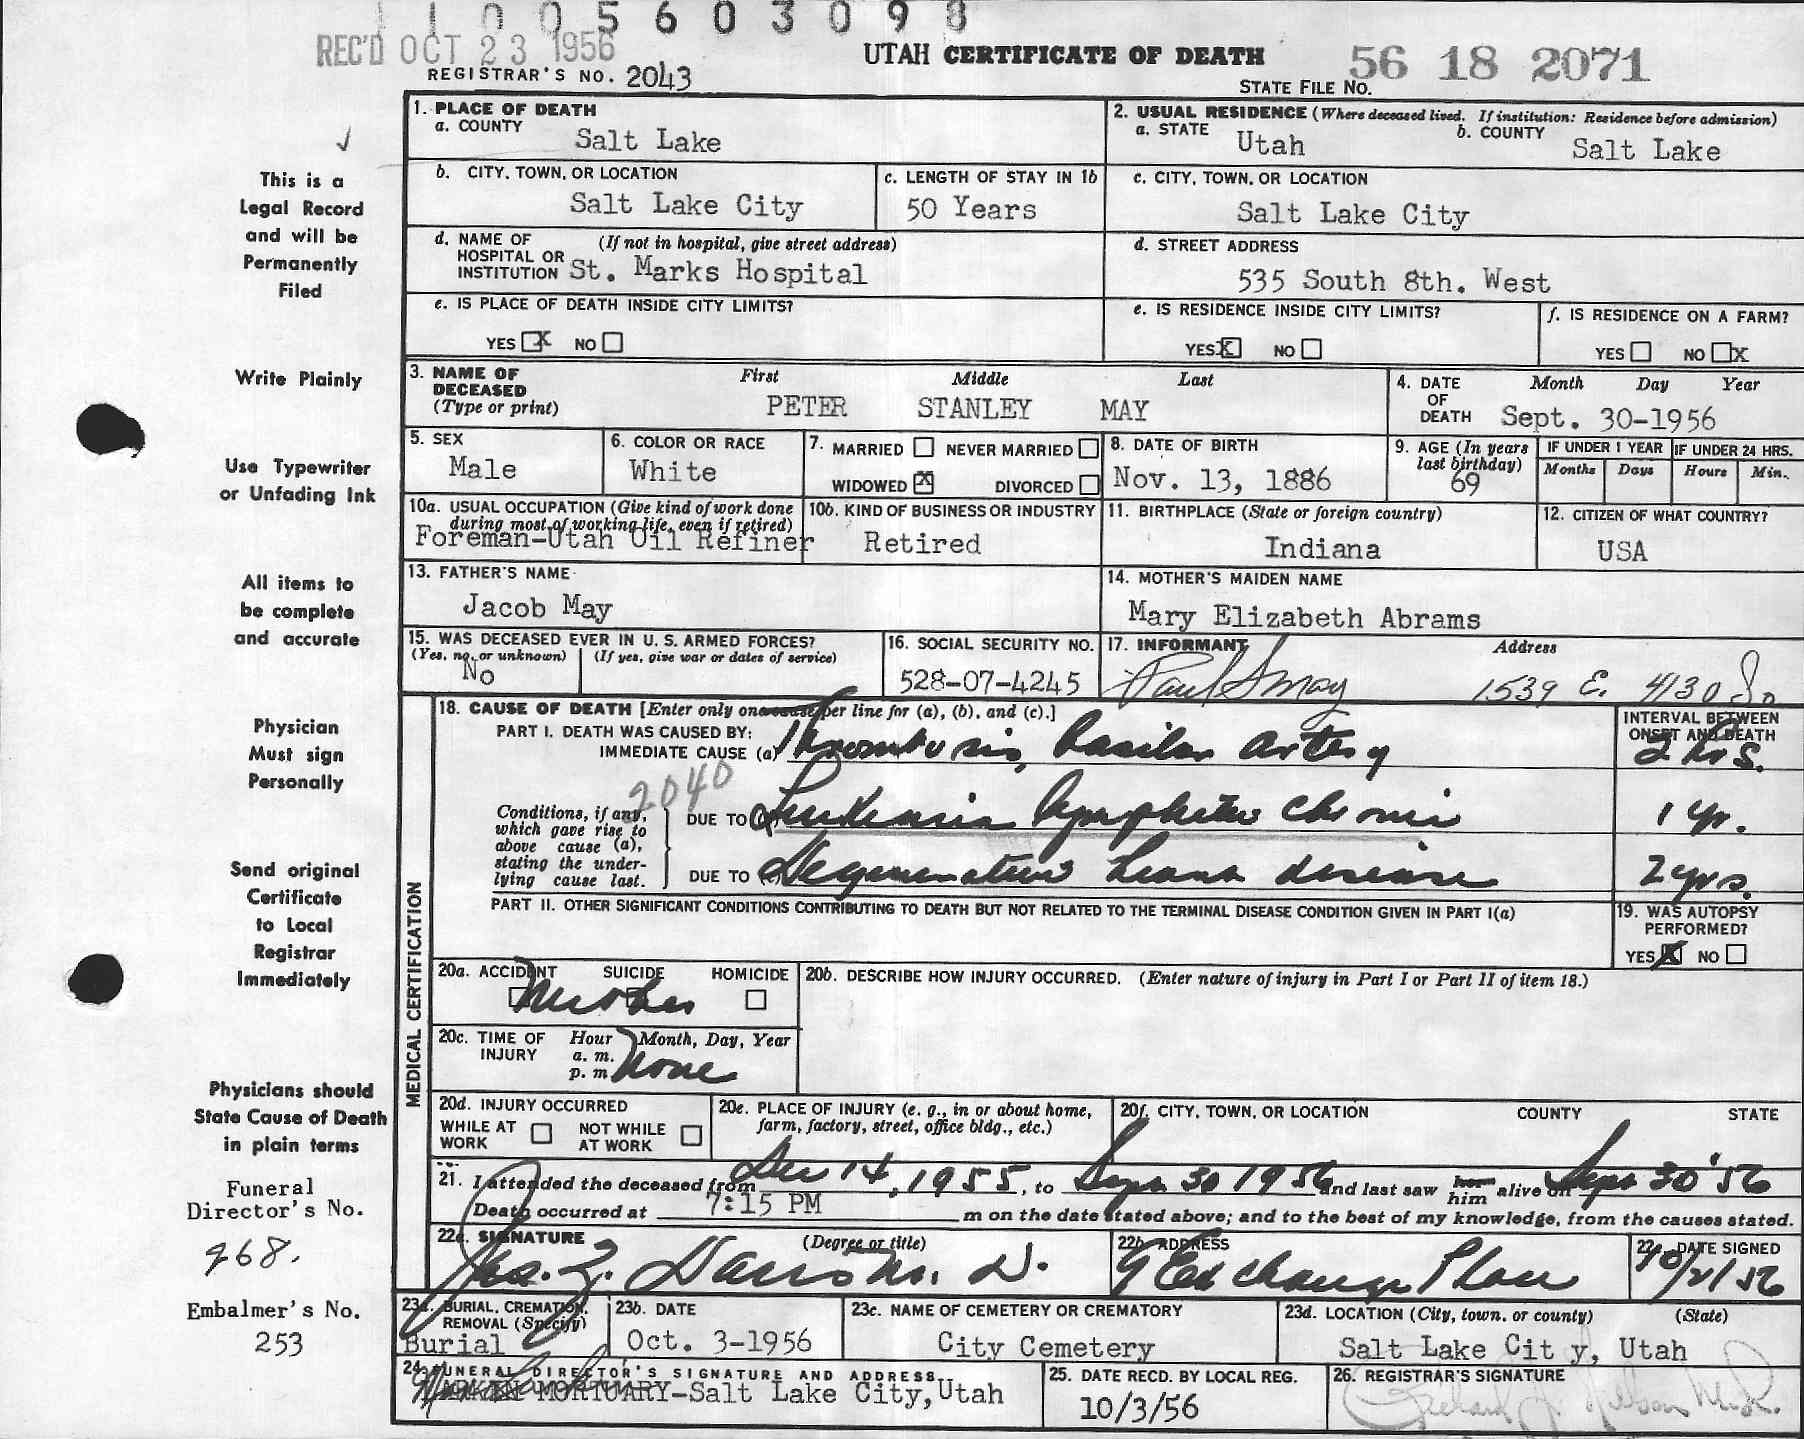 1 1 0 0 5 6 0 3 0 9 8
REC'D OCT 23 1956
UTAH CERTIFICATE OF DEATH
56 18 2071
REGISTRAR'S NO. 2043
STATE FILE NO.
This is a
Legal Record
and will be
Permanently
Filed
Write Plainly
Use Typewriter
or Unfading Ink
All items to
be complete
and accurate
Physician
Must sign
Personally
Send original
Certificate
to Local
Registrar
Immediately
Physicians should
State Cause of Death
in plain terms
Funeral
Director's No.
468.
Embalmer's No.
253
1. PLACE OF DEATH
a. COUNTY
Salt Lake
2. USUAL RESIDENCE (Where deceased lived. If institution: Residence before admission)
a. STATE Utah b. COUNTY Salt Lake
b. CITY, TOWN, OR LOCATION
Salt Lake City
c. LENGTH OF STAY IN 1b
50 Years
c. CITY, TOWN, OR LOCATION
Salt Lake City
d. NAME OF HOSPITAL OR INSTITUTION (If not in hospital, give street address)
St. Marks Hospital
d. STREET ADDRESS
535 South 8th. West
e. IS PLACE OF DEATH INSIDE CITY LIMITS?
YES X NO
e. IS RESIDENCE INSIDE CITY LIMITS?
YES X NO
f. IS RESIDENCE ON A FARM?
YES NO X
3. NAME OF DECEASED (Type or print)
First Middle Last
PETER STANLEY MAY
4. DATE OF DEATH Month Day Year
Sept. 30-1956
5. SEX
Male
6. COLOR OR RACE
White
7. MARRIED NEVER MARRIED
WIDOWED X DIVORCED
8. DATE OF BIRTH
Nov. 13, 1886
9. AGE (In years last birthday)
69
IF UNDER 1 YEAR
Months Days
IF UNDER 24 HRS.
Hours Min.
10a. USUAL OCCUPATION (Give kind of work done during most of working life, even if retired)
Foreman-Utah Oil Refiner
10b. KIND OF BUSINESS OR INDUSTRY
Retired
11. BIRTHPLACE (State or foreign country)
Indiana
12. CITIZEN OF WHAT COUNTRY?
USA
13. FATHER'S NAME
Jacob May
14. MOTHER'S MAIDEN NAME
Mary Elizabeth Abrams
15. WAS DECEASED EVER IN U. S. ARMED FORCES?
(Yes, no, or unknown) (If yes, give war or dates of service)
No
16. SOCIAL SECURITY NO.
528-07-4245
17. INFORMANT Address
Paul S May 1539 E. 4130 So
MEDICAL CERTIFICATION
18. CAUSE OF DEATH [Enter only one cause per line for (a), (b), and (c).]
PART I. DEATH WAS CAUSED BY:
IMMEDIATE CAUSE (a) Thrombosis, basilar artery
INTERVAL BETWEEN ONSET AND DEATH
2 hrs.
2040
Conditions, if any, which gave rise to above cause (a), stating the underlying cause last.
DUE TO Leukemia lymphatic chronic 1 yr.
DUE TO (c) Degenerative heart disease 2 yrs.
PART II. OTHER SIGNIFICANT CONDITIONS CONTRIBUTING TO DEATH BUT NOT RELATED TO THE TERMINAL DISEASE CONDITION GIVEN IN PART I(a)
19. WAS AUTOPSY PERFORMED?
YES X NO
20a. ACCIDENT SUICIDE HOMICIDE
20b. DESCRIBE HOW INJURY OCCURRED. (Enter nature of injury in Part I or Part II of item 18.)
20c. TIME OF INJURY Hour Month, Day, Year
a. m.
p. m.
None
20d. INJURY OCCURRED
WHILE AT WORK NOT WHILE AT WORK
20e. PLACE OF INJURY (e. g., in or about home, farm, factory, street, office bldg., etc.)
20f. CITY, TOWN, OR LOCATION COUNTY STATE
21. I attended the deceased from Dec 14, 1955, to Sept 30 1956 and last saw her him alive on Sept 30 '56
Death occurred at 7:15 PM m on the date stated above; and to the best of my knowledge, from the causes stated.
22a. SIGNATURE (Degree or title)
M. D.
22b. ADDRESS
9 Exchange Place
22c. DATE SIGNED
10/2/56
23a. BURIAL, CREMATION, REMOVAL (Specify)
Burial
23b. DATE
Oct. 3-1956
23c. NAME OF CEMETERY OR CREMATORY
City Cemetery
23d. LOCATION (City, town, or county) (State)
Salt Lake Cit y, Utah
24. FUNERAL DIRECTOR'S SIGNATURE AND ADDRESS
LARKIN MORTUARY-Salt Lake City, Utah
25. DATE RECD. BY LOCAL REG.
10/3/56
26. REGISTRAR'S SIGNATURE